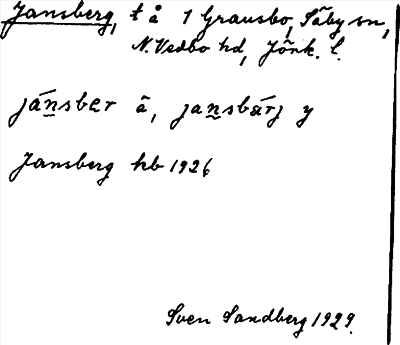 Jansberg, t å 1 Grausbo, Säby sn,
N. Vedbo hd, Jönk. l.
jánsber ä, jansbárj y
Jansberg hb 1926
Sven Sandberg 1929.